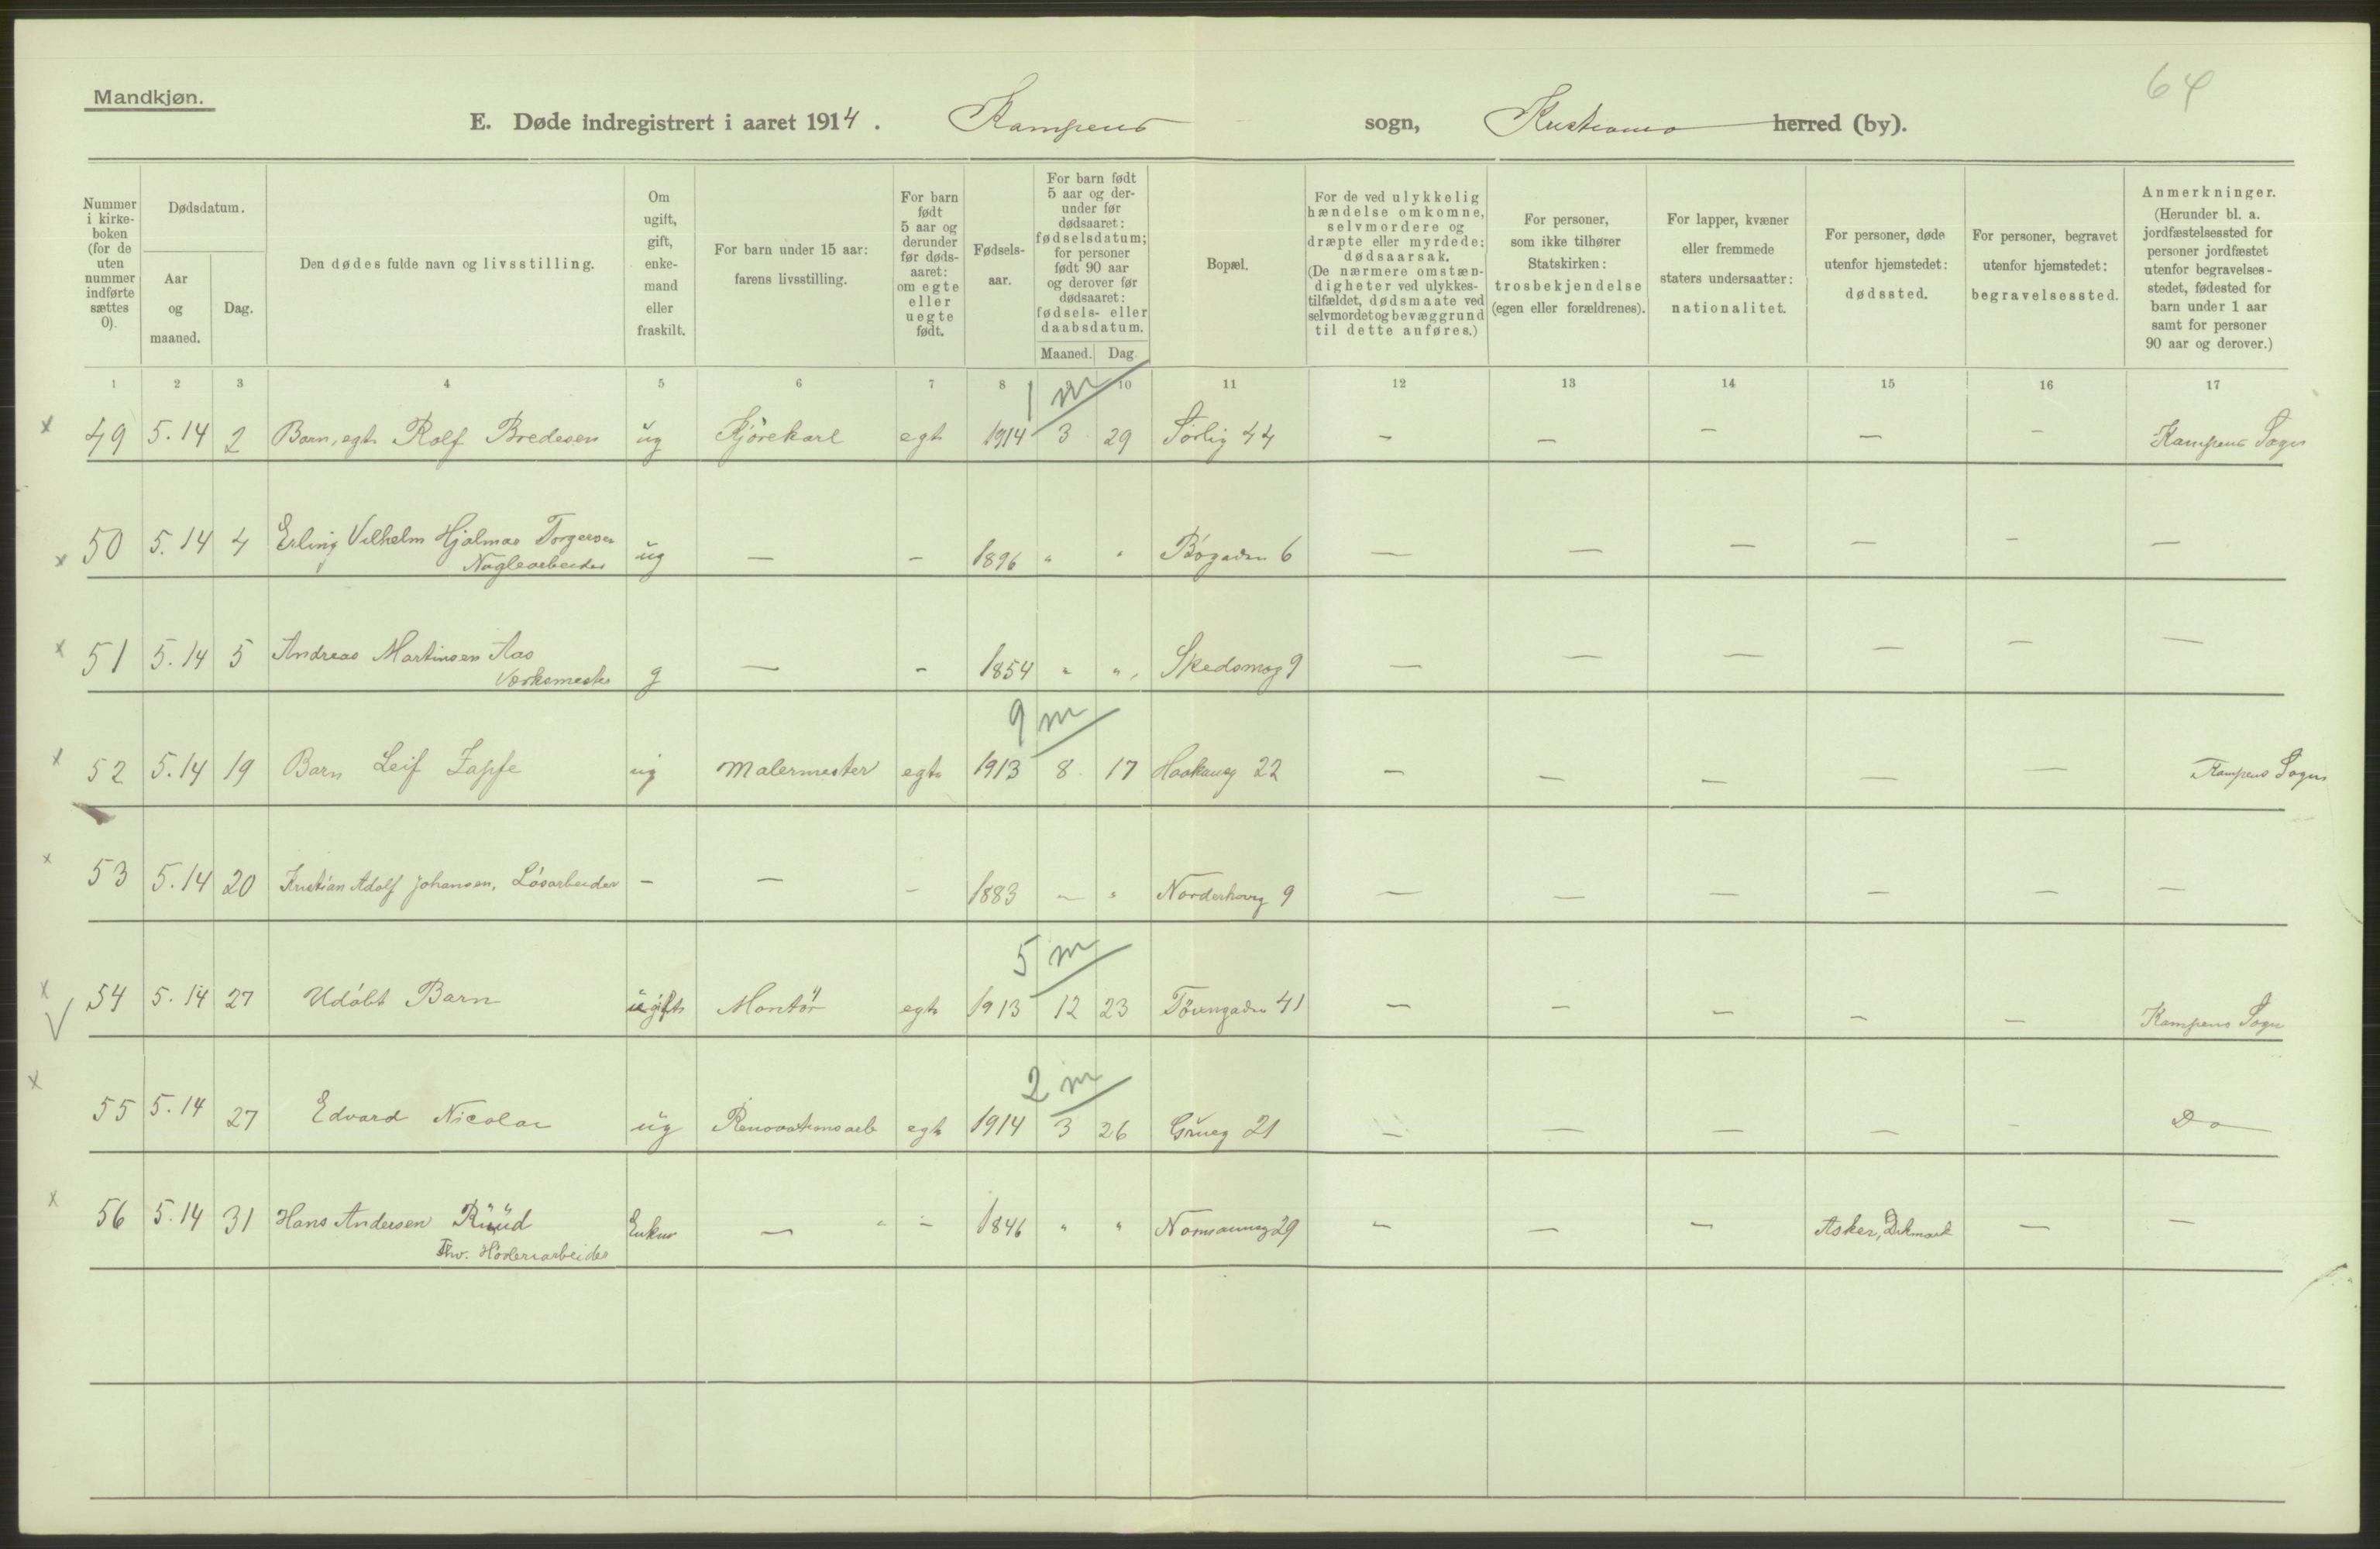 64
Mandkjøn.
E. Døde indregistrert i aaret 1914. Kampens sogn, Kristiania herred (by).
Nummer i kirke-boken (for de uten nummer indførte sættes 0).
Dødsdatum.
Aar og maaned.
Dag.
Den dødes fulde navn og livsstilling.
Om ugift, gift, enke-mand eller fraskilt.
For barn under 15 aar: farens livsstilling.
For barn født 5 aar og derunder før døds-aaret: om egte eller uegte født.
Fødsels-aar.
For barn født 5 aar og der-under før dødsaaret: fødselsdatum; for personer født 90 aar og derover før dødsaaret: fødsels- eller daabsdatum.
Maaned. Dag.
Bopæl.
For de ved ulykkelig hændelse omkomne, selvmordere og dræpte eller myrdede: dødsaarsak. (De nærmere omstæn-digheter ved ulykkes-tilfældet, dødsmaate ved selvmordet og bevæggrund til dette anføres.)
For personer, som ikke tilhører Statskirken: trosbekjendelse (egen eller forældrenes).
For lapper, kvæner eller fremmede staters undersaatter: nationalitet.
For personer, døde utenfor hjemstedet: dødssted.
For personer, begravet utenfor hjemstedet: begravelsessted.
Anmerkninger. (Herunder bl. a. jordfæstelsessted for personer jordfæstet utenfor begravelses-stedet, fødested for barn under 1 aar samt for personer 90 aar og derover.)
1 2 3 4 5 6 7 8 9 10 11 12 13 14 15 16 17
1 m
x 49 5.14 2 Barn, egte Rolf Bredesen ug Kjørekarl egte 1914 3 29 Sørlig 44 — — — — — Kampens Sogn
x 50 5.14 4 Erling Vilhelm Hjalmar Torgersen ug — — 1896 " " Bøgaden 6 — — — — — —
Naglearbeider
x 51 5.14 5 Andreas Martinsen Aas g — — 1854 " " Skedsmog 9 — — — — — —
Værksmester
9 m
x 52 5.14 19 Barn Leif Zapfe ug Malermester egte 1913 8 17 Haakaneg 22 — — — — — Kampens Sogn
x 53 5.14 20 Kristian Adolf Johansen, Løsarbeider — — — 1883 — " Norderhovg 9 — — — — — —
5 m
x V 54 5.14 27 Udøbt Barn ugift Montør egte 1913 12 23 Tøiengaden 41 — — — — — Kampens Sogn
2 m
x 55 5.14 27 Edvard Nicolai ug Renovationsarb egte 1914 3 26 Grueg 21 — — — — — Do
x 56 5.14 31 Hans Andersen Ruud Enkm — " — 1846 " " Normanneg 29 — — — Asker, — —